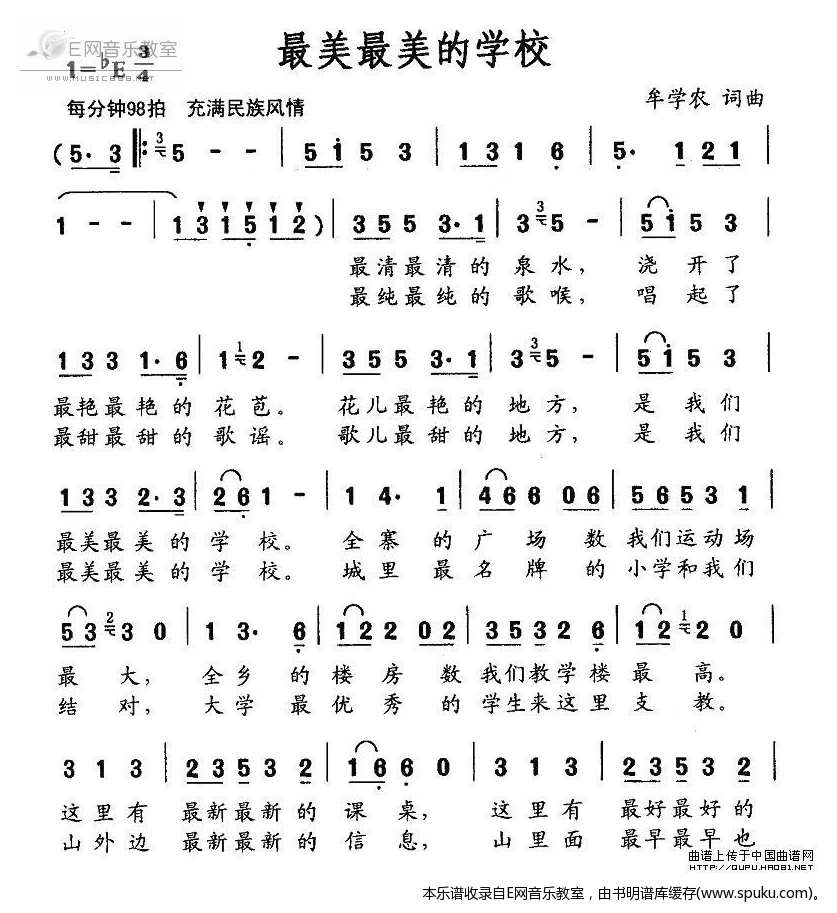 E网音乐教室
WWW.MUSICEOE.NET
最美最美的学校
1=♭E 3/4
每分钟98拍 充满民族风情
牟学农 词曲
(5· 3 ‖: 3 5 - - | 5 i 5 3 | 1 3 1 6 | 5· 1 2 1 |
1 - - | 1 3 1 5 1 2 ) | 3 5 5 3· 1 | 3 3 5 - | 5 i 5 3 |
最清最清的泉水， 浇开了
最纯最纯的歌喉， 唱起了
1 3 3 1· 6 | 1 1 2 - | 3 5 5 3· 1 | 3 3 5 - | 5 i 5 3 |
最艳最艳的花苞。 花儿最艳的地方， 是我们
最甜最甜的歌谣。 歌儿最甜的地方， 是我们
1 3 3 2· 3 | 2 6 1 - | 1 4· 1 | 4 6 6 0 6 | 5 6 5 3 1 |
最美最美的学校。 全寨的广场数我们运动场
最美最美的学校。 城里最名牌的小学和我们
5 3 2 3 0 | 1 3· 6 | 1 2 2 0 2 | 3 5 3 2 6 | 1 2 1 2 0 |
最大， 全乡的楼房数我们教学楼最高。
结对， 大学最优秀的学生来这里支教。
3 1 3 | 2 3 5 3 2 | 1 6 6 0 | 3 1 3 | 2 3 5 3 2 |
这里有 最新最新的课桌， 这里有 最好最好的
山外边 最新最新的信息， 山里面 最早最早也
曲谱上传于中国曲谱网
HTTP://QUPU.HAO81.NET
本乐谱收录自E网音乐教室，由书明谱库缓存(www.spuku.com)。